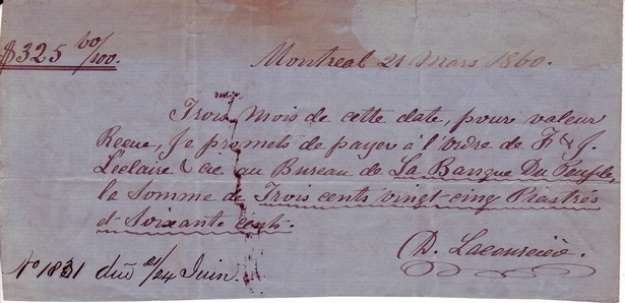 $325 60/100.
Montreal 21 Mars 1860.
Trois Mois de cette date, pour valeur
Recue, Je promets de payer à l'ordre de F & J.
Leclaire & cie au Bureau de La Banque Du Peuple,
la Somme de Trois cents vingt-cinq Piastres
et Soixante cents.
D.
No 1831 due 21/24 Juin.